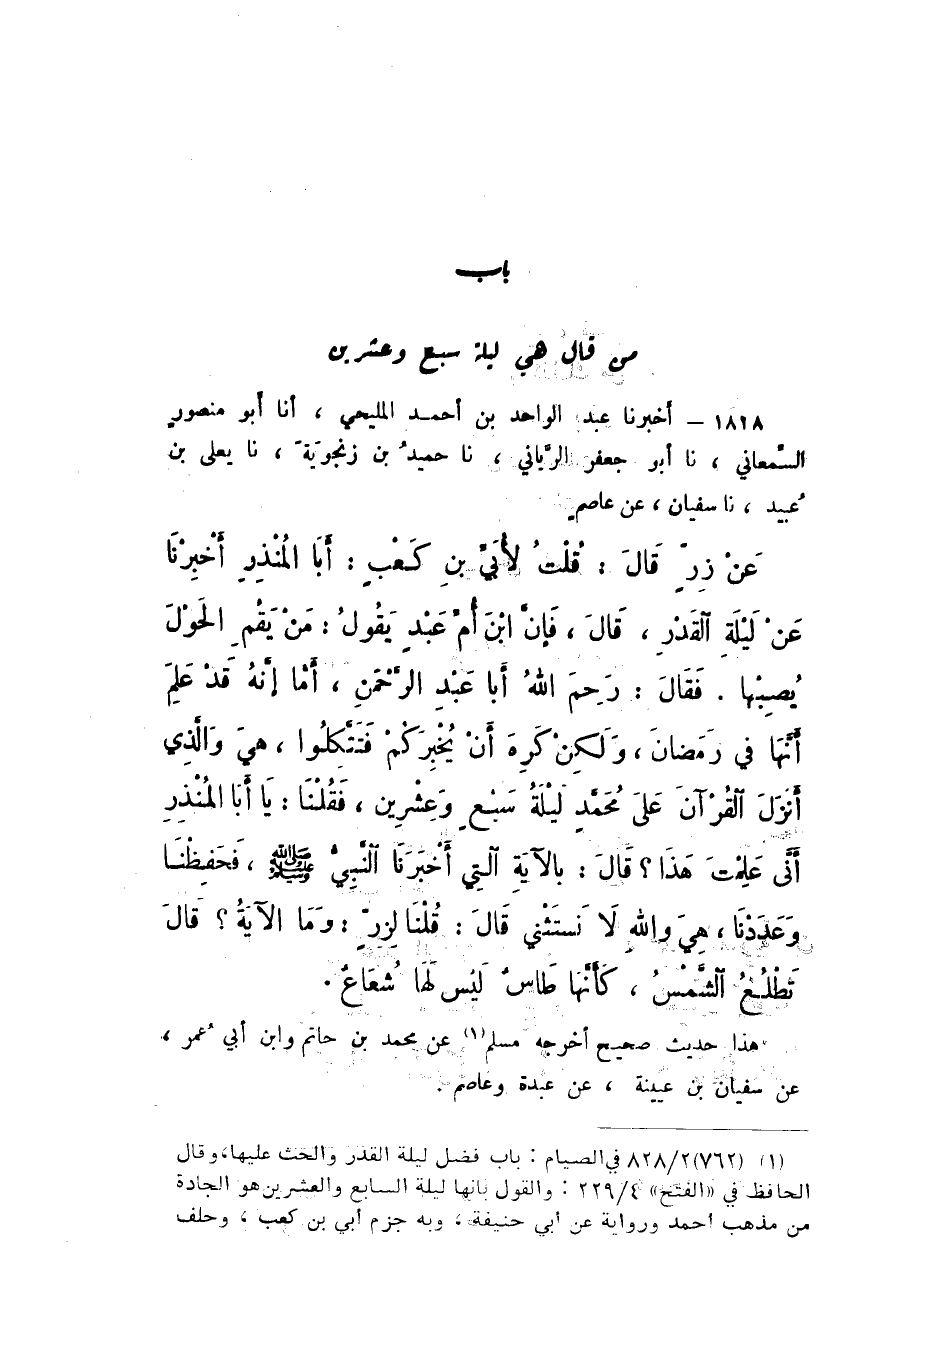 باب
من قال هي ليلة سبع وعشرين
١٨٢٨ – أخبرنا عبد الواحد بن أحمد المليحي ، أنا أبو منصورٍ
السَّمعاني ، نا أبو جعفر الرَّياني ، نا حميدُ بن زنجويَةَ ، نا يعلى بن
عُبيد ، نا سفيان ، عن عاصمٍ
عَنْ زِرٍّ قَالَ : قُلْتُ لأُبَيِّ بنِ كَعْبٍ : أَبَا المُنْذِرِ أَخْبِرْنَا
عَنْ لَيْلَةِ القَدْرِ ، قَالَ ، فَإِنَّ ابْنَ أُمِّ عَبْدٍ يَقُولُ : مَنْ يَقُمِ الحَوْلَ
يُصِبْها . فَقَالَ : رَحِمَ اللهُ أَبا عَبْدِ الرَّحْمَنِ ، أَمَا إِنَّهُ قَدْ عَلِمَ
أَنَّهَا في رَمَضانَ ، وَلَكِنْ كَرِهَ أَنْ يُخْبِرَكُمْ فَتَتَّكِلُوا ، هيَ وَالَّذِي
أَنزَلَ القُرْآنَ عَلَى مُحَمَّدٍ لَيْلَةُ سَبْعٍ وَعِشْرِين ، فَقُلْنَا : يَا أَبَا المُنْذِرِ
أَنَّى عَلِمْتَ هَذَا ؟ قَالَ : بالآيَةِ التِي أَخْبَرَنَا النَّبِيُّ ﷺ ، فَحَفِظْنَا
وَعَدَدْنَا ، هِيَ واللهِ لَا نَستَثْني قَالَ : قُلْنَا لِزِرٍّ : وَمَا الآيَةُ ؟ قَالَ
تَطْلُعُ الشَّمْسُ ، كَأَنَّها طَاسٌ لَيْسَ لَهَا شُعَاعٌ .
هذا حديث صحيح أخرجه مسلم(١) عن محمد بن حاتم وابن أبي عُمر ،
عن سفيان بن عيينة ، عن عبدة وعاصم .
(١) (٧٦٢) ٨٢٨/٢ في الصيام : باب فضل ليلة القدر والحث عليها، وقال
الحافظ في «الفتح» ٢٢٩/٤ : والقول بأنها ليلة السابع والعشرين هو الجادة
من مذهب أحمد ورواية عن أبي حنيفة ، وبه جزم أبي بن كعب ، وحلف